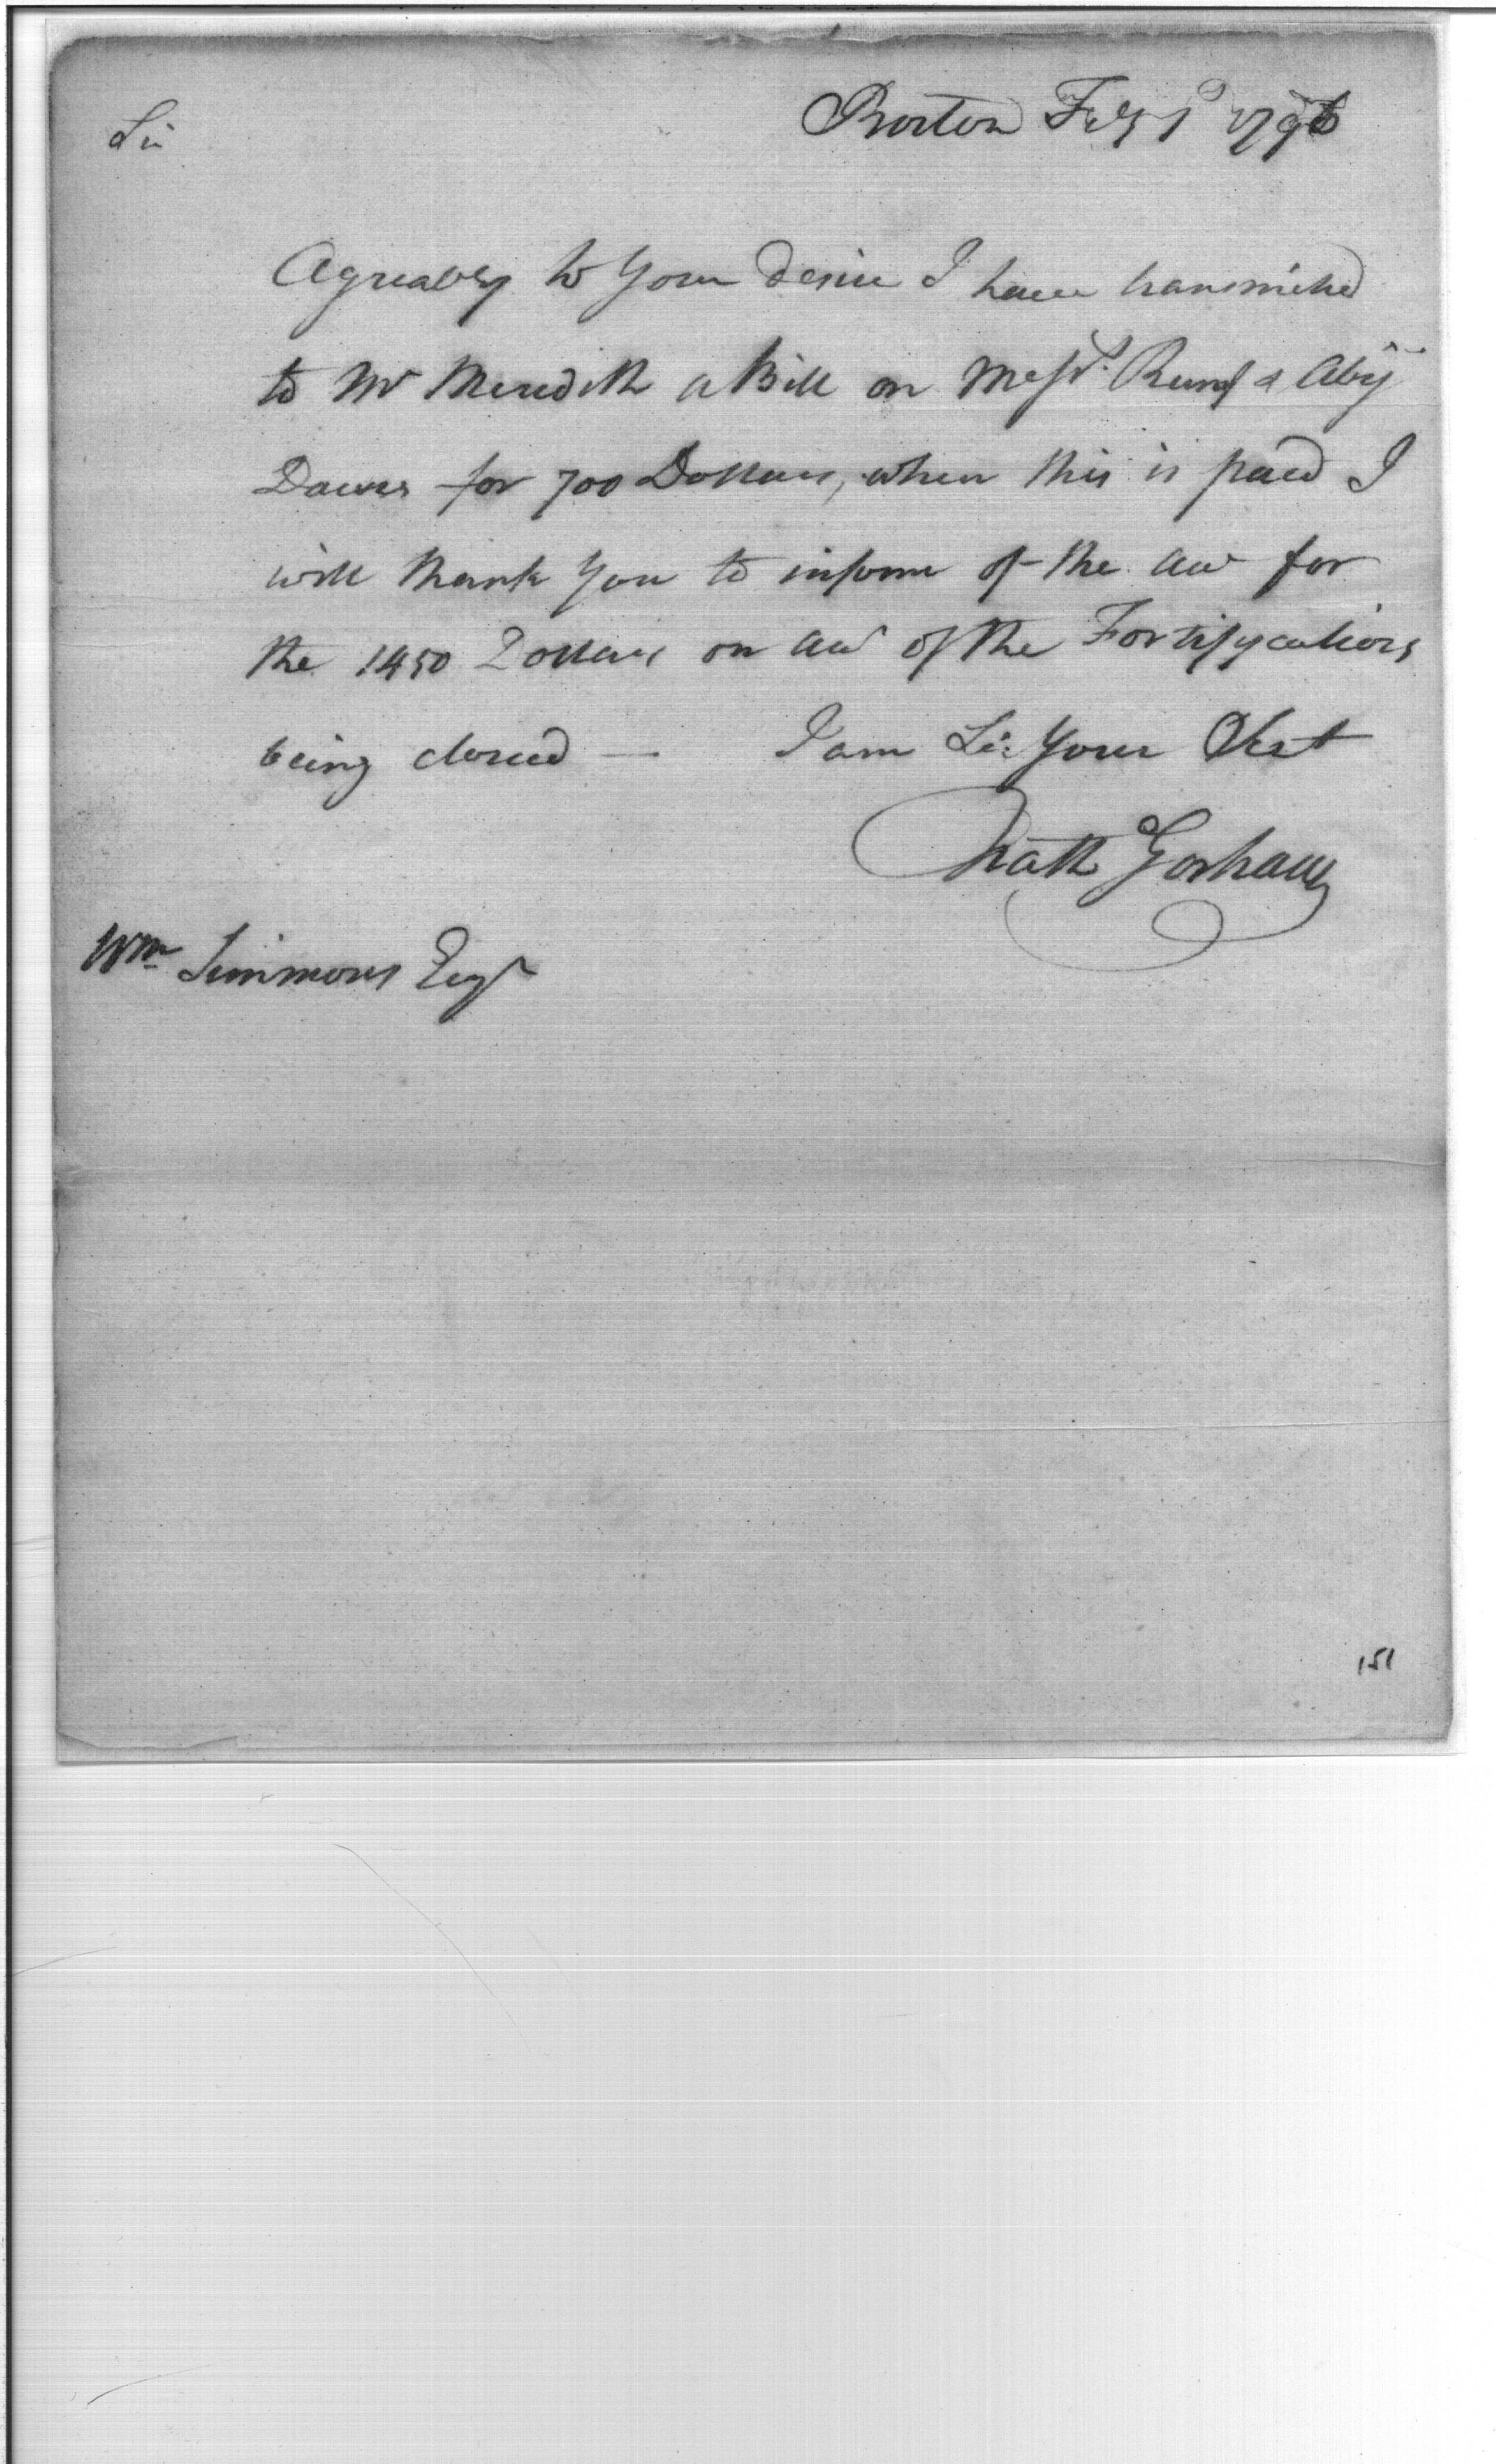 Boston Feby 1 1796
Sir
Agreably to Your desire I have transmitted
to Mr Meredith a Bill on Messrs. & Abij
Dawes for 700 Dollars, when this is paid I
will thank You to inform of the acct for
the 1450 Dollars on acct of the Fortifycations
being closed — I am Sir Your Obst
Nath Gorham
Wm Simmons Esqr
151